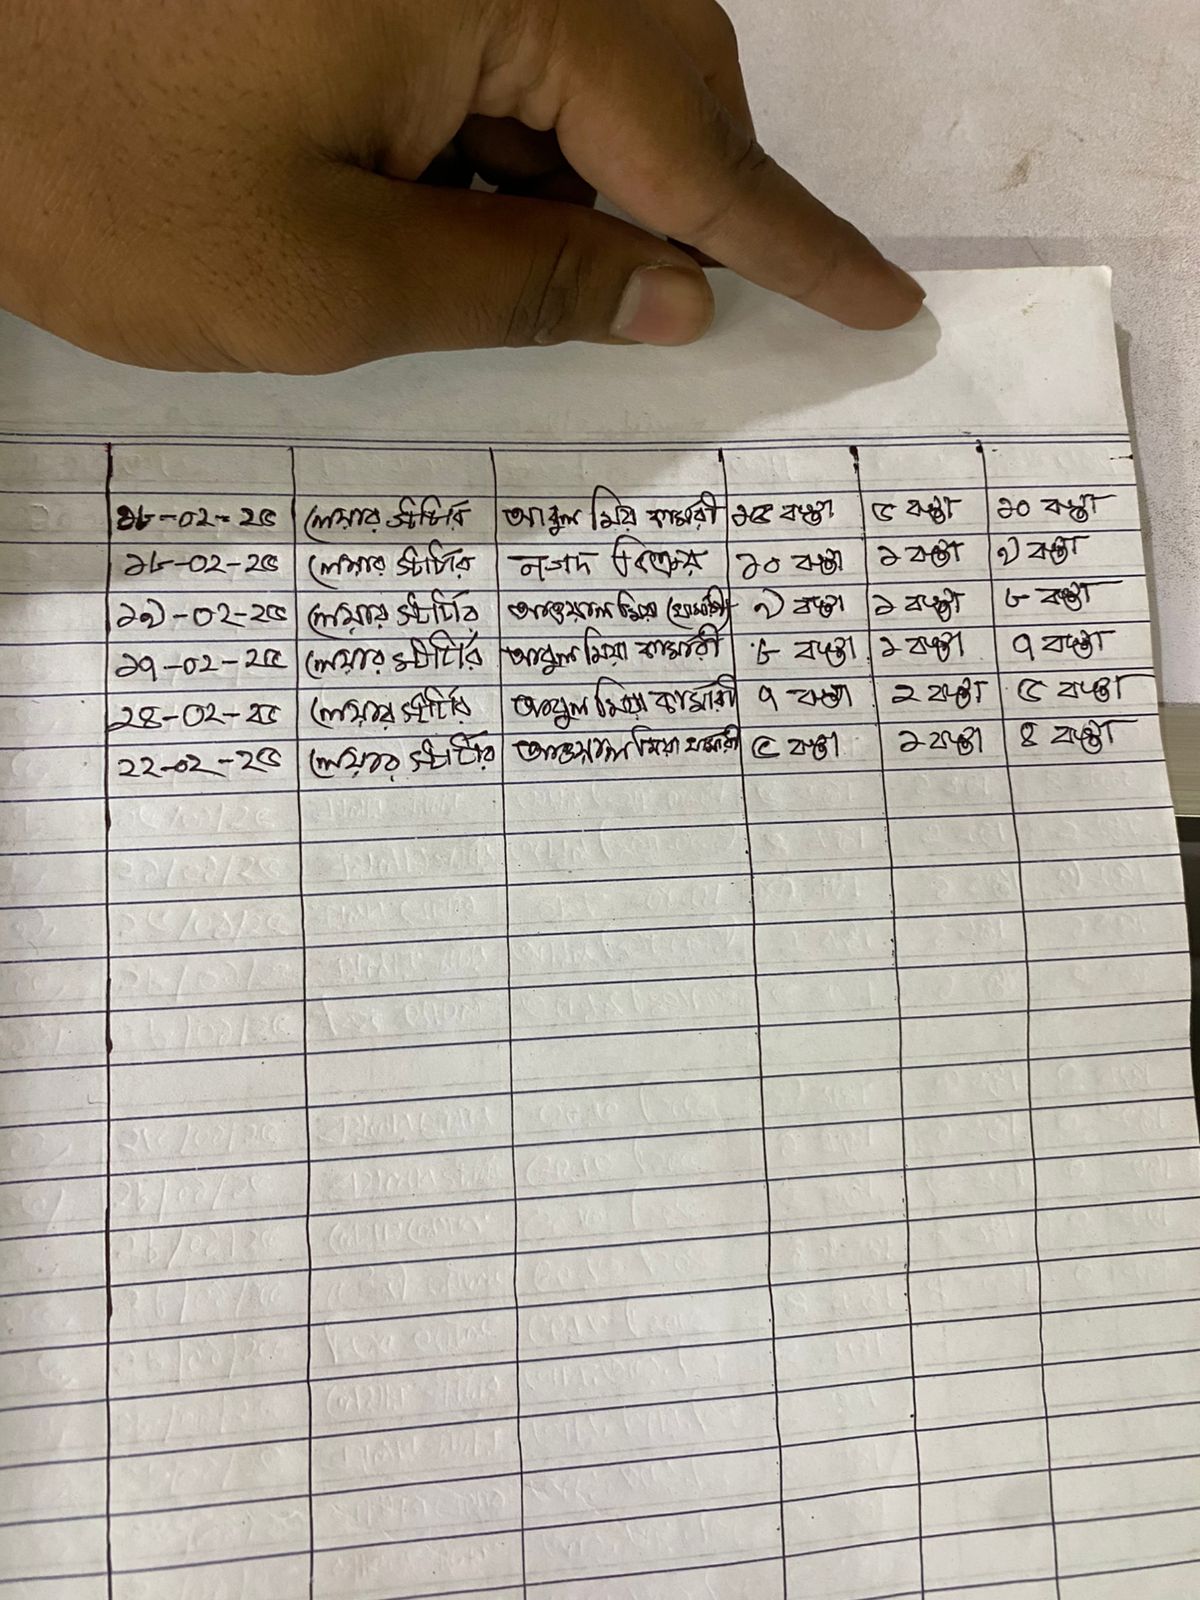 ১৮-০২-২৫ লেয়ার স্টার্টার আবুল মিয়া কামারী ১৫ বস্তা ৫ বস্তা ১০ বস্তা
১৮-০২-২৫ লেয়ার স্টার্টার নগদ বিক্রয় ১০ বস্তা ১ বস্তা ৯ বস্তা
১৯-০২-২৫ লেয়ার স্টার্টার মিয়া ৯ বস্তা ১ বস্তা ৮ বস্তা
১৭-০২-২৫ লেয়ার স্টার্টার আবুল মিয়া কামারী ৮ বস্তা ১ বস্তা ৭ বস্তা
২৪-০২-২৫ লেয়ার স্টার্টার আবুল মিয়া কামারী ৭ বস্তা ২ বস্তা ৫ বস্তা
২২-০২-২৫ লেয়ার স্টার্টার মিয়া ৫ বস্তা ১ বস্তা ৪ বস্তা